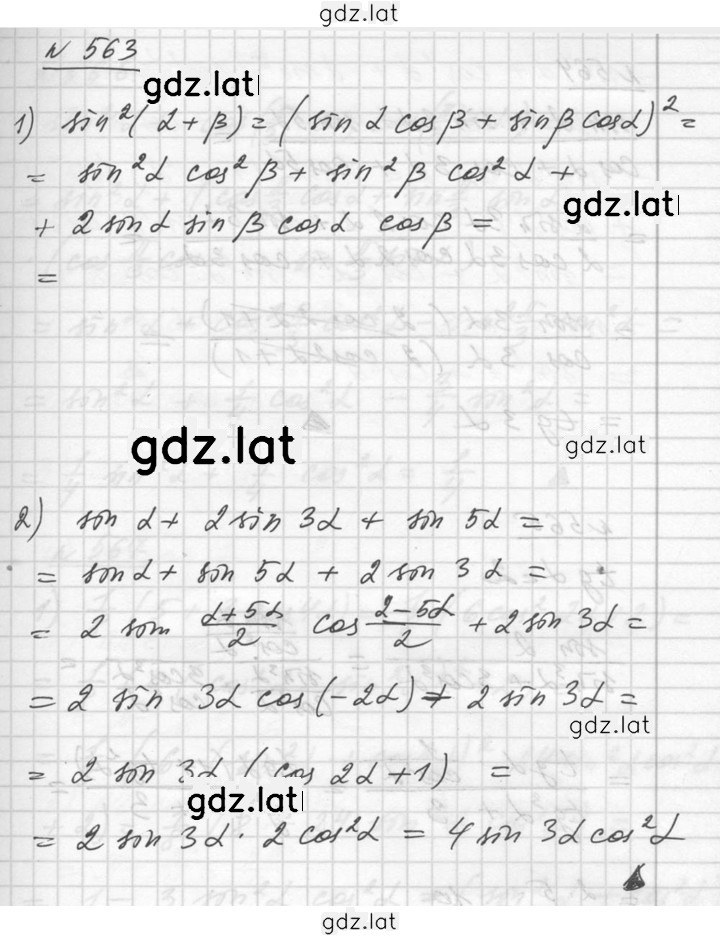 gdz.lat
№ 563
gdz.lat
1) sin²(α+β) = (sin α cos β + sin β cos α)² =
= sin²α cos²β + sin²β cos²α +
gdz.lat
+ 2 sin α sin β cos α cos β =
=
gdz.lat
gdz.lat
2) sin α + 2 sin 3α + sin 5α =
= sin α + sin 5α + 2 sin 3α =
= 2 sin (α+5α)/2 cos (α-5α)/2 + 2 sin 3α =
= 2 sin 3α cos(-2α) + 2 sin 3α =
gdz.lat
= 2 sin 3α (cos 2α + 1) =
gdz.lat
= 2 sin 3α · 2 cos²α = 4 sin 3α cos²α
gdz.lat